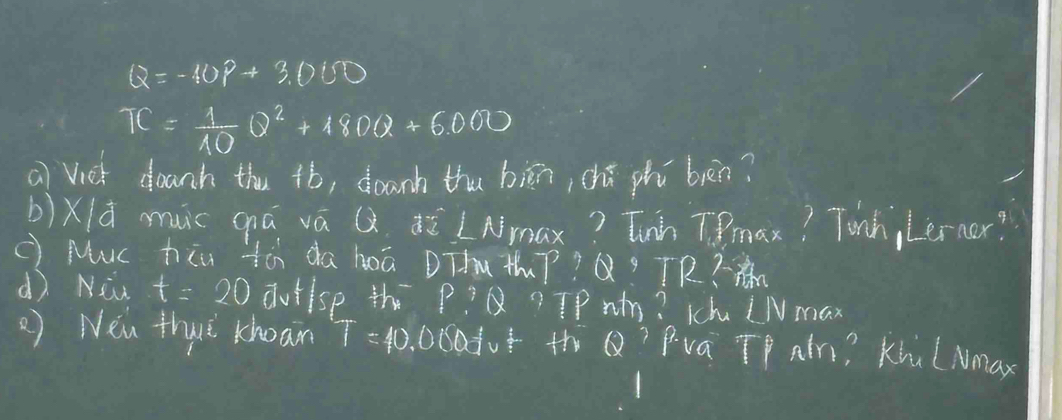 Q = -10P + 3.000
TC = 1/10 Q² + 180Q + 6.000
a) Viết doanh thu tb, doanh thu biên, chi phí biên?
b) X/đ mức giá và Q để LNmax? Tính TPmax? Tính Lerner?
c) Mục tiêu tối đa hoá DThu thì P? Q? TR? ntn
d) Nếu t = 20 đvt/sp thì P? Q? TP ntn? khi LNmax
e) Nếu thuế khoán T = 10.000đvt thì Q? P và TP ntn? Khi LNmax